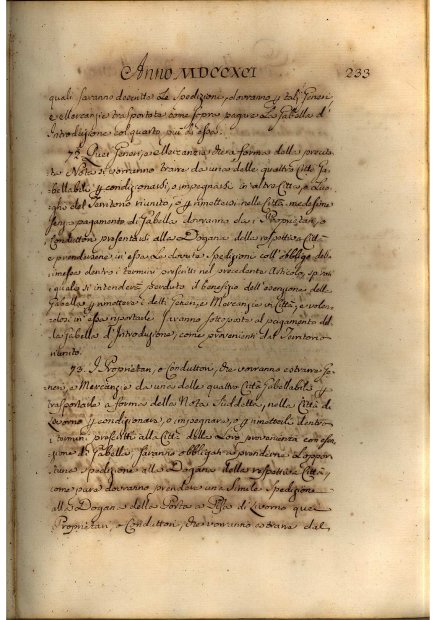 Anno MDCCXCI 233
quali saranno descritte le Spedizioni, dovranno p tali Generi
e Mercanzie trasportate come sopra pagare la Gabella d'
Introduzione col quarto più di essa.
72. Quei Generi, e Mercanzie che a forma della precita
ta Nota si vorranno trarre da una delle quattro Città Ga
bellabili p condizionarsi, o impegnarsi in altra Città, o Luo
gho del Territorio riunito, e p rimettersi nelle Città medesime
senza pagamento di Gabella dovranno dai Proprietarj, o
Conduttori presentarsi alla Dogana della respettiva Città
e prendersene in essa le dovute Spedizioni coll'obbligo del
rimessa dentro i termini prefissi nel precedente Articolo, spirati
i quali s'intenderà perduto il benefizio dell'esenzione della
Gabella p rimettere detti Generi, e Mercanzie in Città, e volen
dosi in essa riportare saranno sottoposte al pagamento del
la Gabella d'Introduzione, come provenienti dal Territorio
riunito.
73. I Proprietarj, o Conduttori, che vorranno estrarre Ge
neri, e Mercanzie da una delle quattro Città Gabellabili p
trasportarle a forma della Nota suddetta, nella Città di
Livorno p condizionare, o impegnare, e p rimetterli dentro
i termini prefissi alla Città della loro provenienza con esen
zione di Gabella, saranno obbligati a prenderne l'oppor
tuna Spedizione alla Dogana della respettiva Città,
come pure dovranno prendere una simile Spedizione
alla Dogana della Porta a Pisa di Livorno quei
Proprietarj, o Conduttori, che vorranno estrarre dal